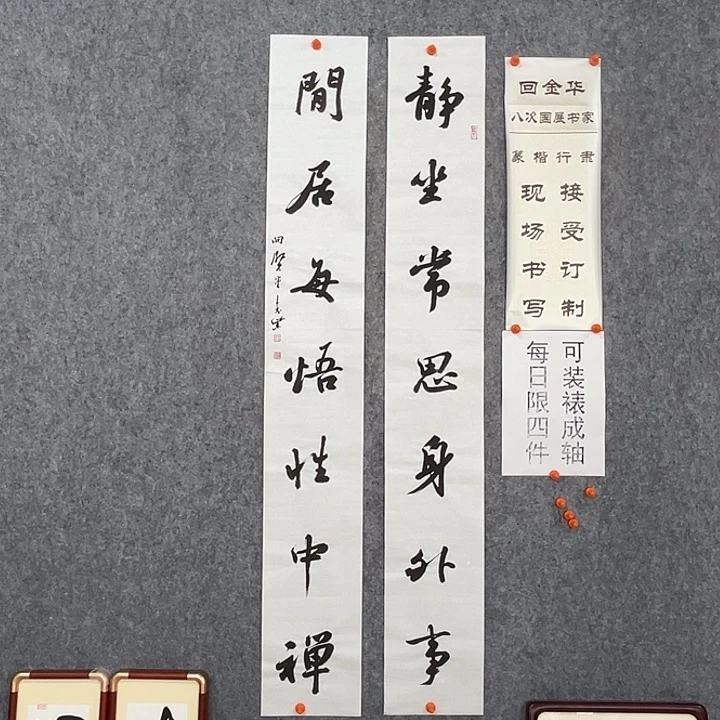 静坐常思身外事
閒居每悟性中禅
回金华
八次国展书家
篆楷行隶
接受订制
现场书写
可装裱成轴
每日限四件